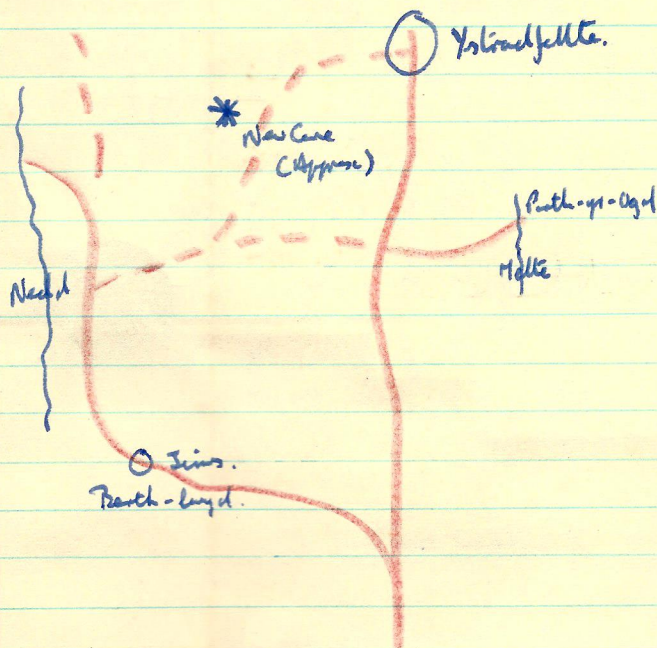 Ystradfellte.
New Cave
(Approx)
Porth-yr-Ogof
Mellte
Nedd
Jims.
Berth-lwyd.